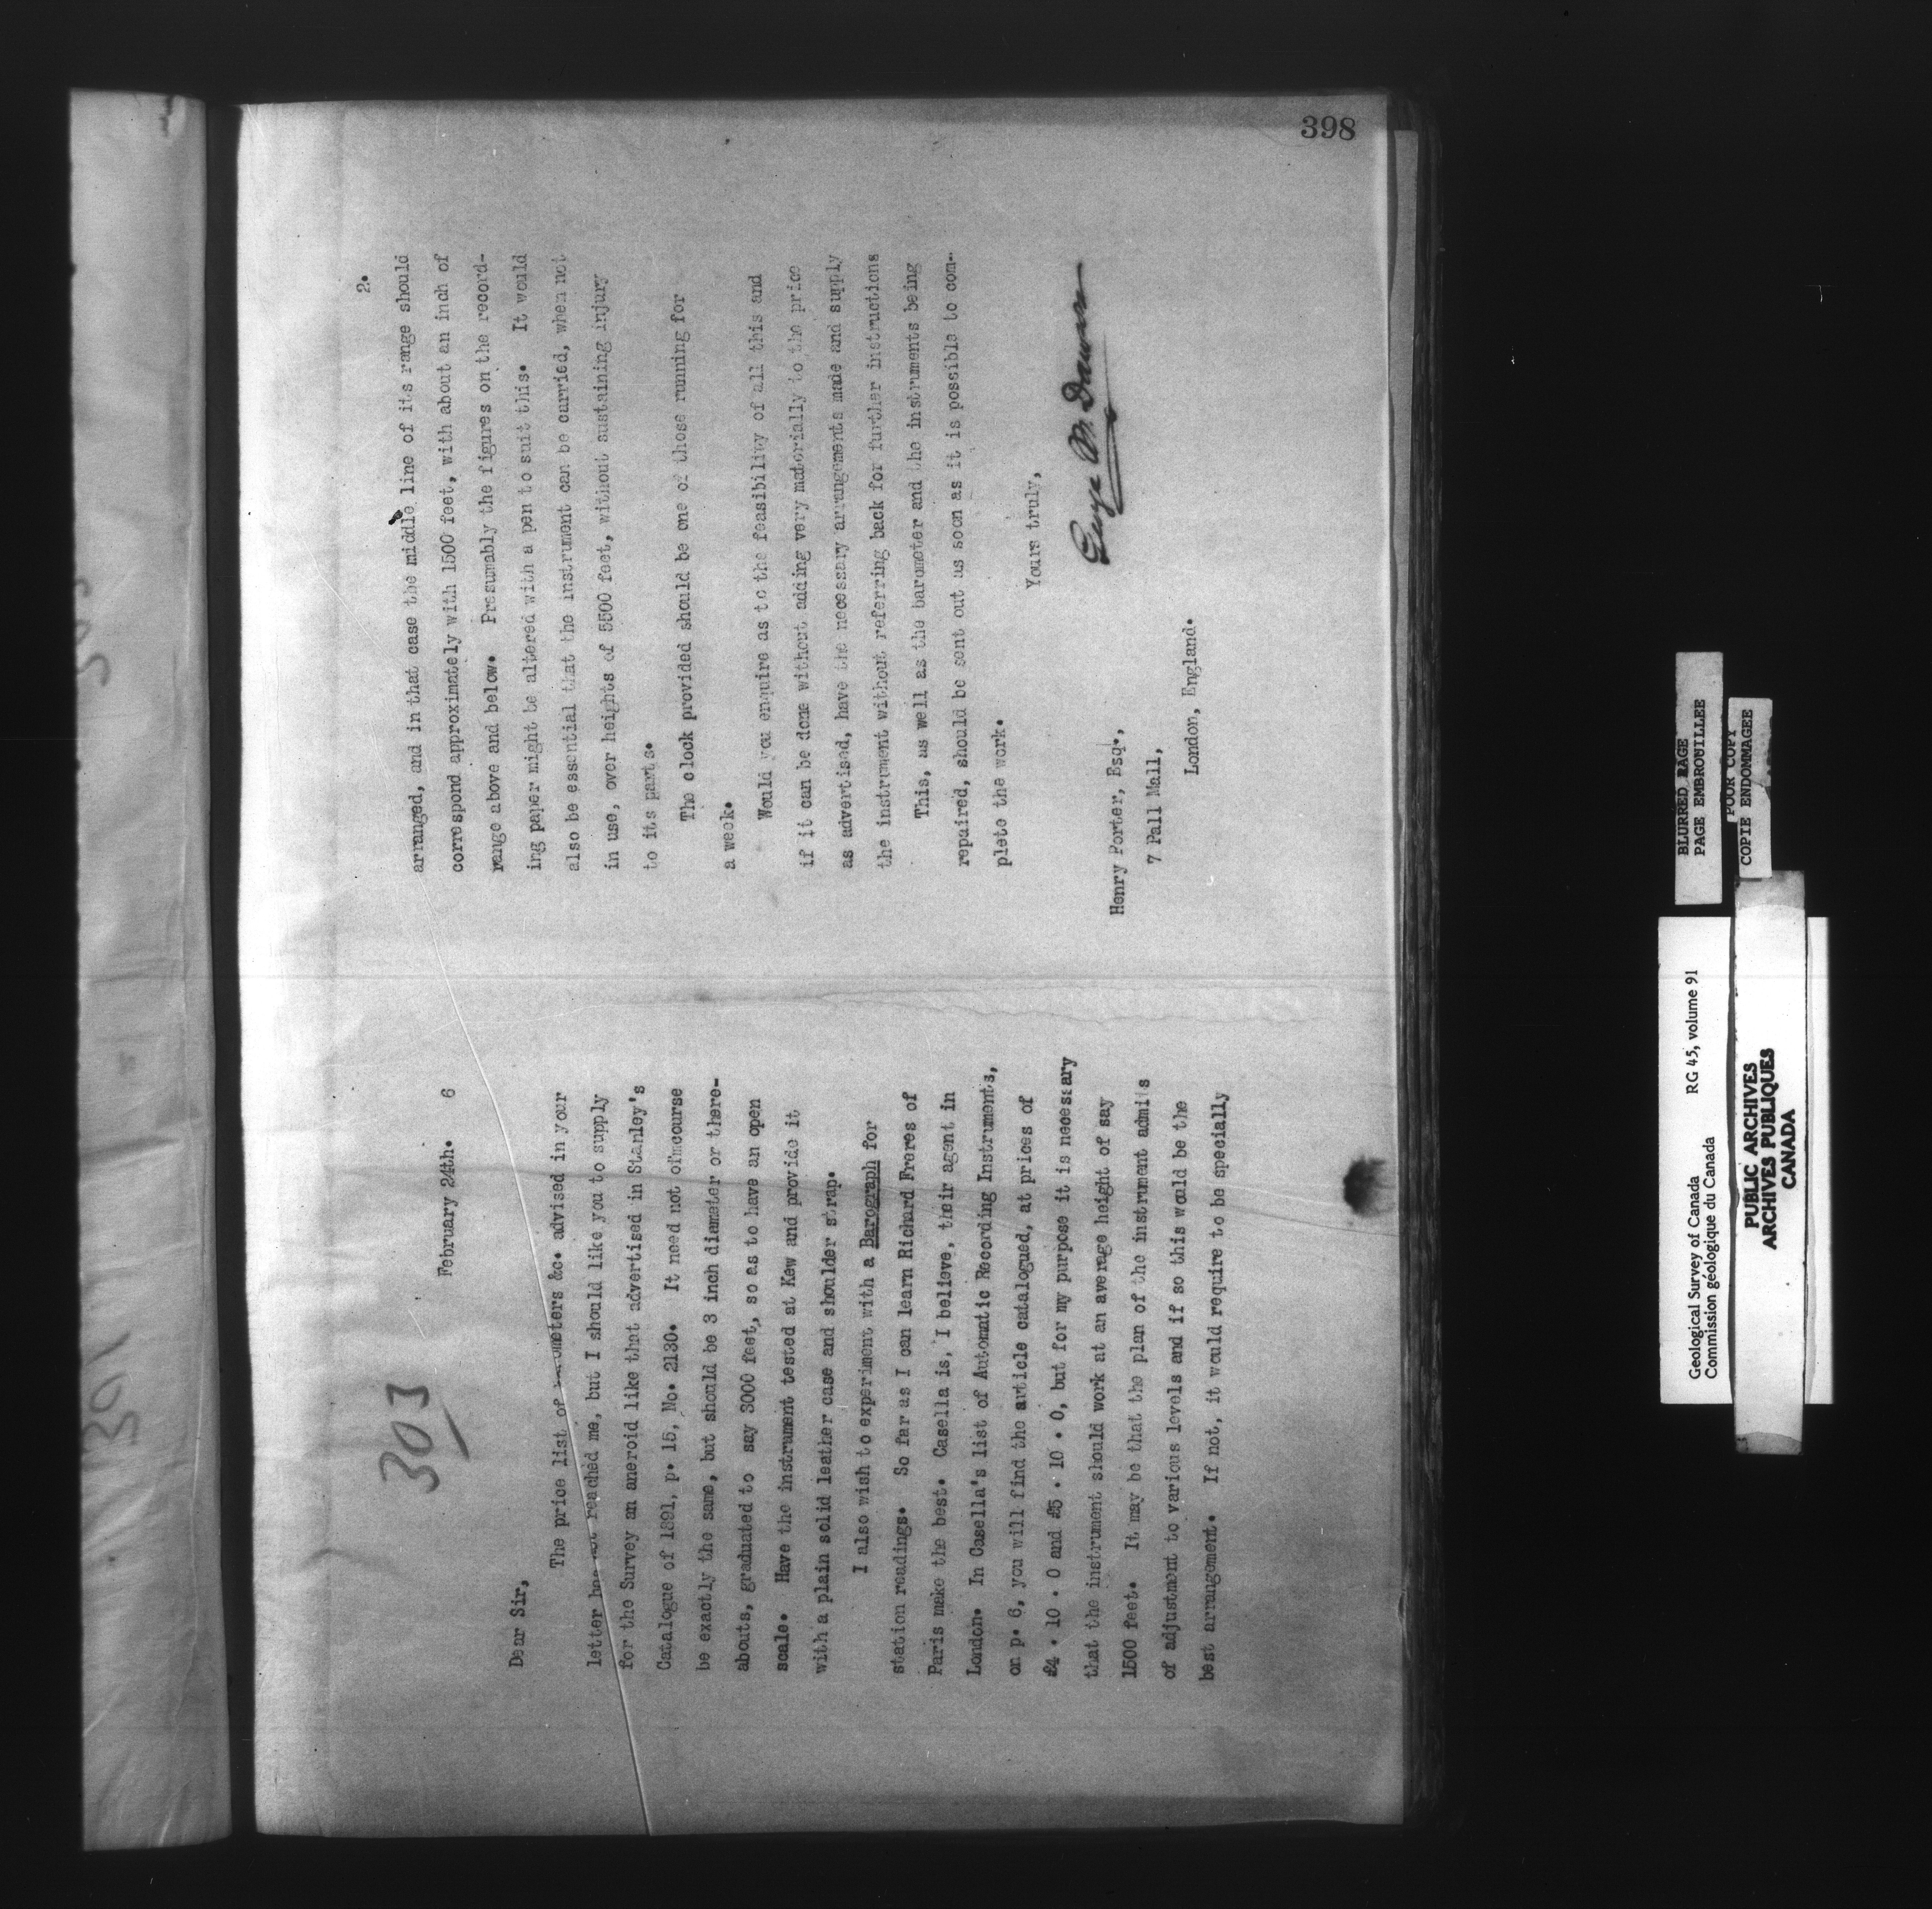 398
303
February 24th.    6
Dear Sir,
The price list of barometers &c. advised in your
letter has not reached me, but I should like you to supply
for the Survey an aneroid like that advertised in Stanley's
Catalogue of 1891, p. 15, No. 2130.  It need not ofmcourse
be exactly the same, but should be 3 inch diameter or there-
abouts, graduated to say 3000 feet, so as to have an open
scale.  Have the instrument tested at Kew and provide it
with a plain solid leather case and shoulder strap.
I also wish to experiment with a Barograph for
station readings.  So far as I can learn Richard Freres of
Paris make the best.  Casella is, I believe, their agent in
London.  In Casella's list of Automatic Recording Instruments,
on p. 6, you will find the article catalogued, at prices of
£4 . 10 . 0 and £5 . 10 . 0, but for my purpose it is necessary
that the instrument should work at an average height of say
1500 feet.  It may be that the plan of the instrument admits
of adjustment to various levels and if so this would be the
best arrangement.  If not, it would require to be specially
2.
arranged, and in that case the middle line of its range should
correspond approximately with 1500 feet, with about an inch of
range above and below.  Presumably the figures on the record-
ing paper might be altered with a pen to suit this.  It would
also be essential that the instrument can be carried, when not
in use, over heights of 5500 feet, without sustaining injury
to its parts.
The clock provided should be one of those running for
a week.
Would you enquire as to the feasibility of all this and
if it can be done without adding very materially to the price
as advertised, have the necessary arrangements made and supply
the instrument without referring back for further instructions
This, as well as the barometer and the instruments being
repaired, should be sent out as soon as it is possible to com-
plete the work.
Yours truly,
George M. Dawson
Henry Porter, Esq.,
7 Pall Mall,
London, England.
BLURRED PAGE
PAGE EMBROUILLEE
POOR COPY
COPIE ENDOMMAGEE
Geological Survey of Canada    RG 45, volume 91
Commission géologique du Canada
PUBLIC ARCHIVES
ARCHIVES PUBLIQUES
CANADA